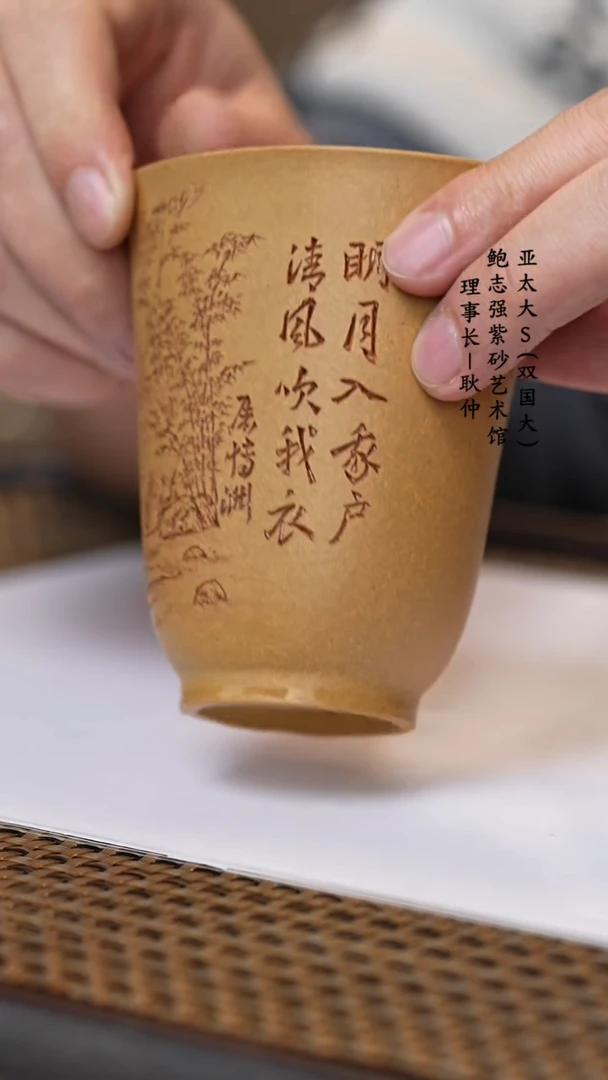 明月入我户
清风吹我衣
亚太大S(双国大)
鲍志强紫砂艺术馆
理事长—耿仲